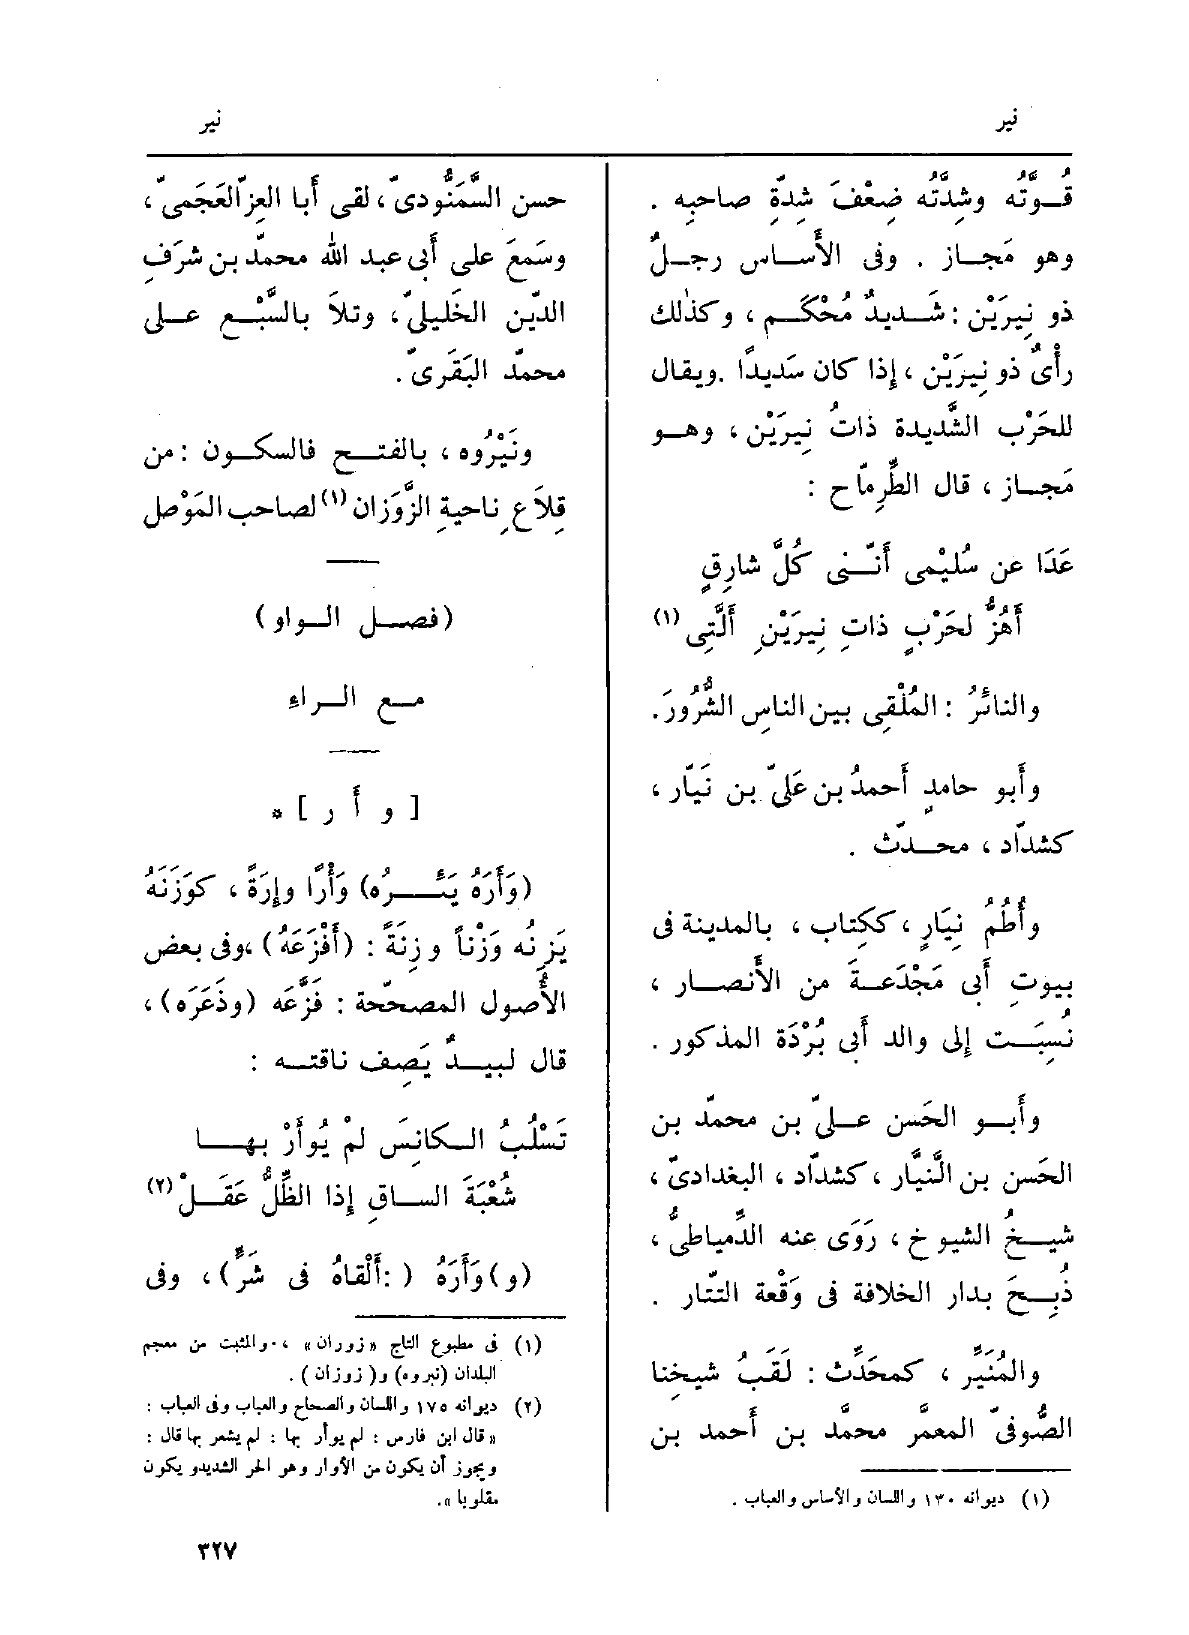 نير
نير
قـوَّتُه وشِدَّتُه ضِعْفَ شِدَّةِ صاحبِه .
وهو مَجـاز . وفى الأَسـاس رجـلٌ
ذو نِيرَيْن : شَـديدٌ مُحْكَـم ، وكذلك
رأْىٌ ذو نِيرَيْن ، إِذا كان سَديدًا .ويقال
للحَرْب الشَّديدة ذاتُ نِيرَيْن ، وهـو
مَجـاز ، قال الطِّرِمّاح :
عَدَا عن سُليْمى أَنَّـنى كُلَّ شارِقٍ
أَهُزُّ لحَرْبٍ ذاتِ نِيرَيْنِ أَلَّتِى (١)
والنائرُ : المُلْقِى بين الناسِ الشُّرُورَ.
وأَبو حامدٍ أَحمدُ بن عَلىّ بن نَيّار ،
كشدّاد ، محـدّث .
وأُطُم نِيَارٍ ، ككِتاب ، بالمدينة فى
بيوتِ أَبى مَجْدَعـةَ من الأَنصـار ،
نُسِبَـت إِلى والد أَبى بُرْدَة المذكور .
وأَبـو الحَسن عـلىّ بن محمّد بن
الحَسن بن النَّيَّار ، كشدّاد ، البغدادىّ ،
شيـخُ الشيوخ ، رَوَى عنه الدِّمياطىُّ ،
ذُبِـحَ بدار الخلافة فى وَقْعة التّتار .
والمُنَيَّر ، كمحَدِّث : لَقَبُ شيخنا
الصُّوفىّ المعمَّر محمَّد بن أَحمد بن
(١) ديوانه ١٣٠ واللسان والأساس والعباب .
حسن السَّمَنُّودىّ ، لقى أَبا العِزّ العَجَمىّ ،
وسَمعَ على أَبى عبد الله محمّد بن شرَفِ
الدّين الخَليلىّ ، وتلاَ بالسَّبْـع عـلى
محمّد البَقَرىّ .
ونَيْرُوه ، بالفتـح فالسكـون : من
قِلاَعِ ناحيةِ الزَّوَزان (١) لصاحب المَوْصل
(فصـل الـواو)
مـع الـراء
[ و أ ر ] *
(وَأَرَهُ يَئِـــرُه) وَأْرًا وإِرَةً ، كوَزَنَهُ
يَزِنُه وَزْناً وزِنَةً : (أَفْزَعَهُ) ،وفى بعض
الأُصول المصحّحة : فَزَّعَه (وذَعَرَه) ،
قال لبيـدٌ يَصِف ناقتـه :
تَسْلُبُ الـكانِسَ لمْ يُوأَرْ بهـــا
شُعْبَةَ السـاقِ إِذا الظِّلُّ عَقَـلْ (٢)
(و) وَأَرَهُ ( :أَلْقاهُ فى شَرٍّ) ، وفى
(١) فى مطبوع التاج « زوران » ، والمثبت من معجم
البلدان (نيروه) و( زوزان ) .
(٢) ديوانه ١٧٥ واللسان والصحاح والعباب وفى العباب :
« قال ابن فارس : لم يوأر بها : لم يشعر بها قال :
ويجوز أن يكون من الأوار وهو الحر الشديدو يكون
مقلوبا ».
٣٢٧